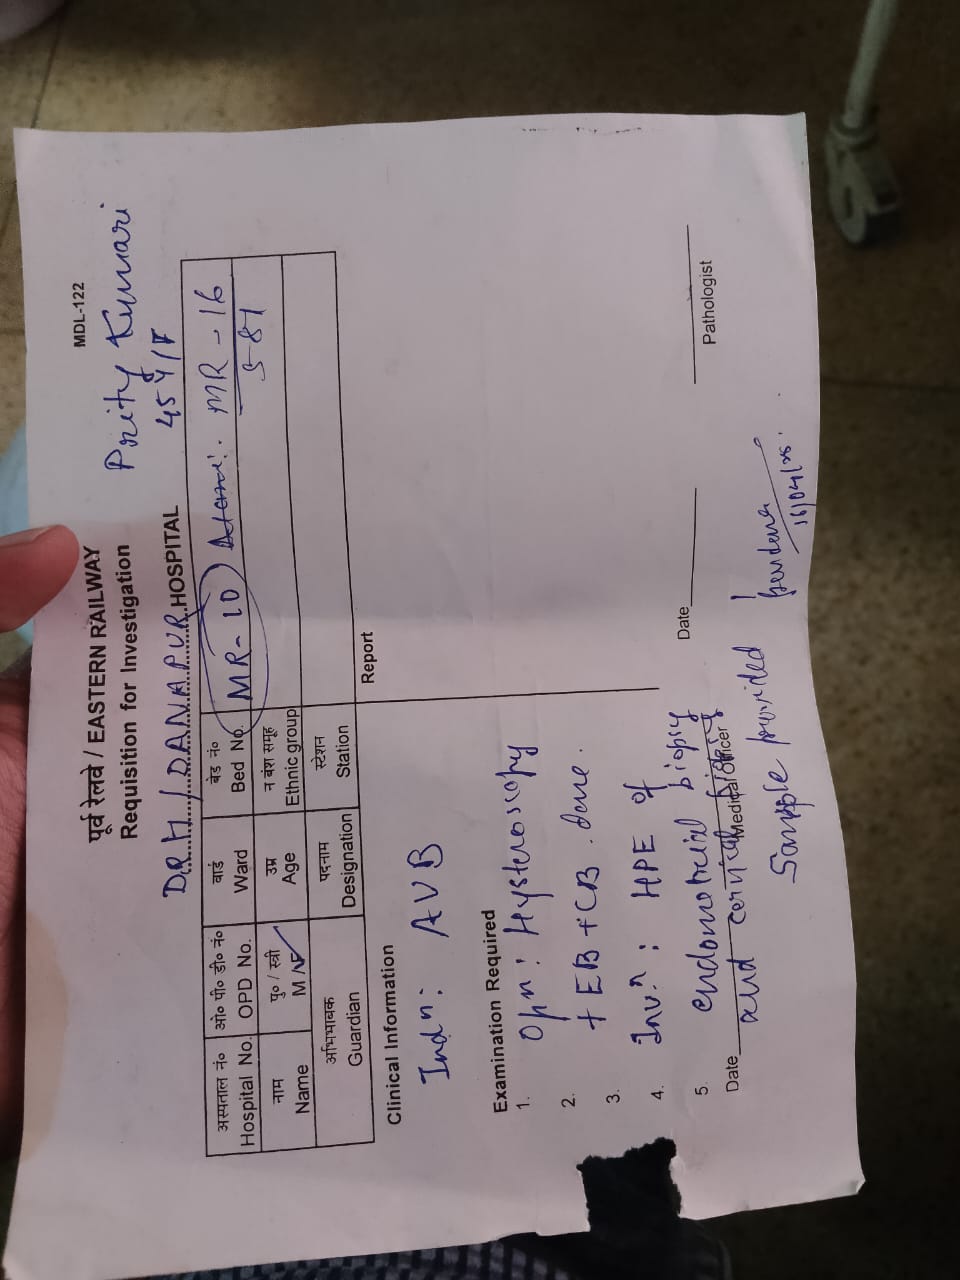 MDL-122
पूर्व रेलवे / EASTERN RAILWAY
Requisition for Investigation
Prity Kumari
45 Y/F
DRH/DANAPUR HOSPITAL
अस्पताल नं० ओ० पी० डी० नं० वार्ड बेड नं०
Hospital No. OPD No. Ward Bed No. MR-10 MR-16
581
नाम पु० / स्त्री उम्र न वंश समूह
Name M/F Age Ethnic group
अभिभावक पदनाम स्टेशन
Guardian Designation Station
Clinical Information
Report
Indn: AVB
Examination Required
1. Opn: Hysteroscopy
2. + EB + CB. done.
3.
4. Invn: HPE of
5. endometrial biopsy
and cervical biopsy
Date Medical Officer
Date Pathologist
Sample provided
16/04/25.